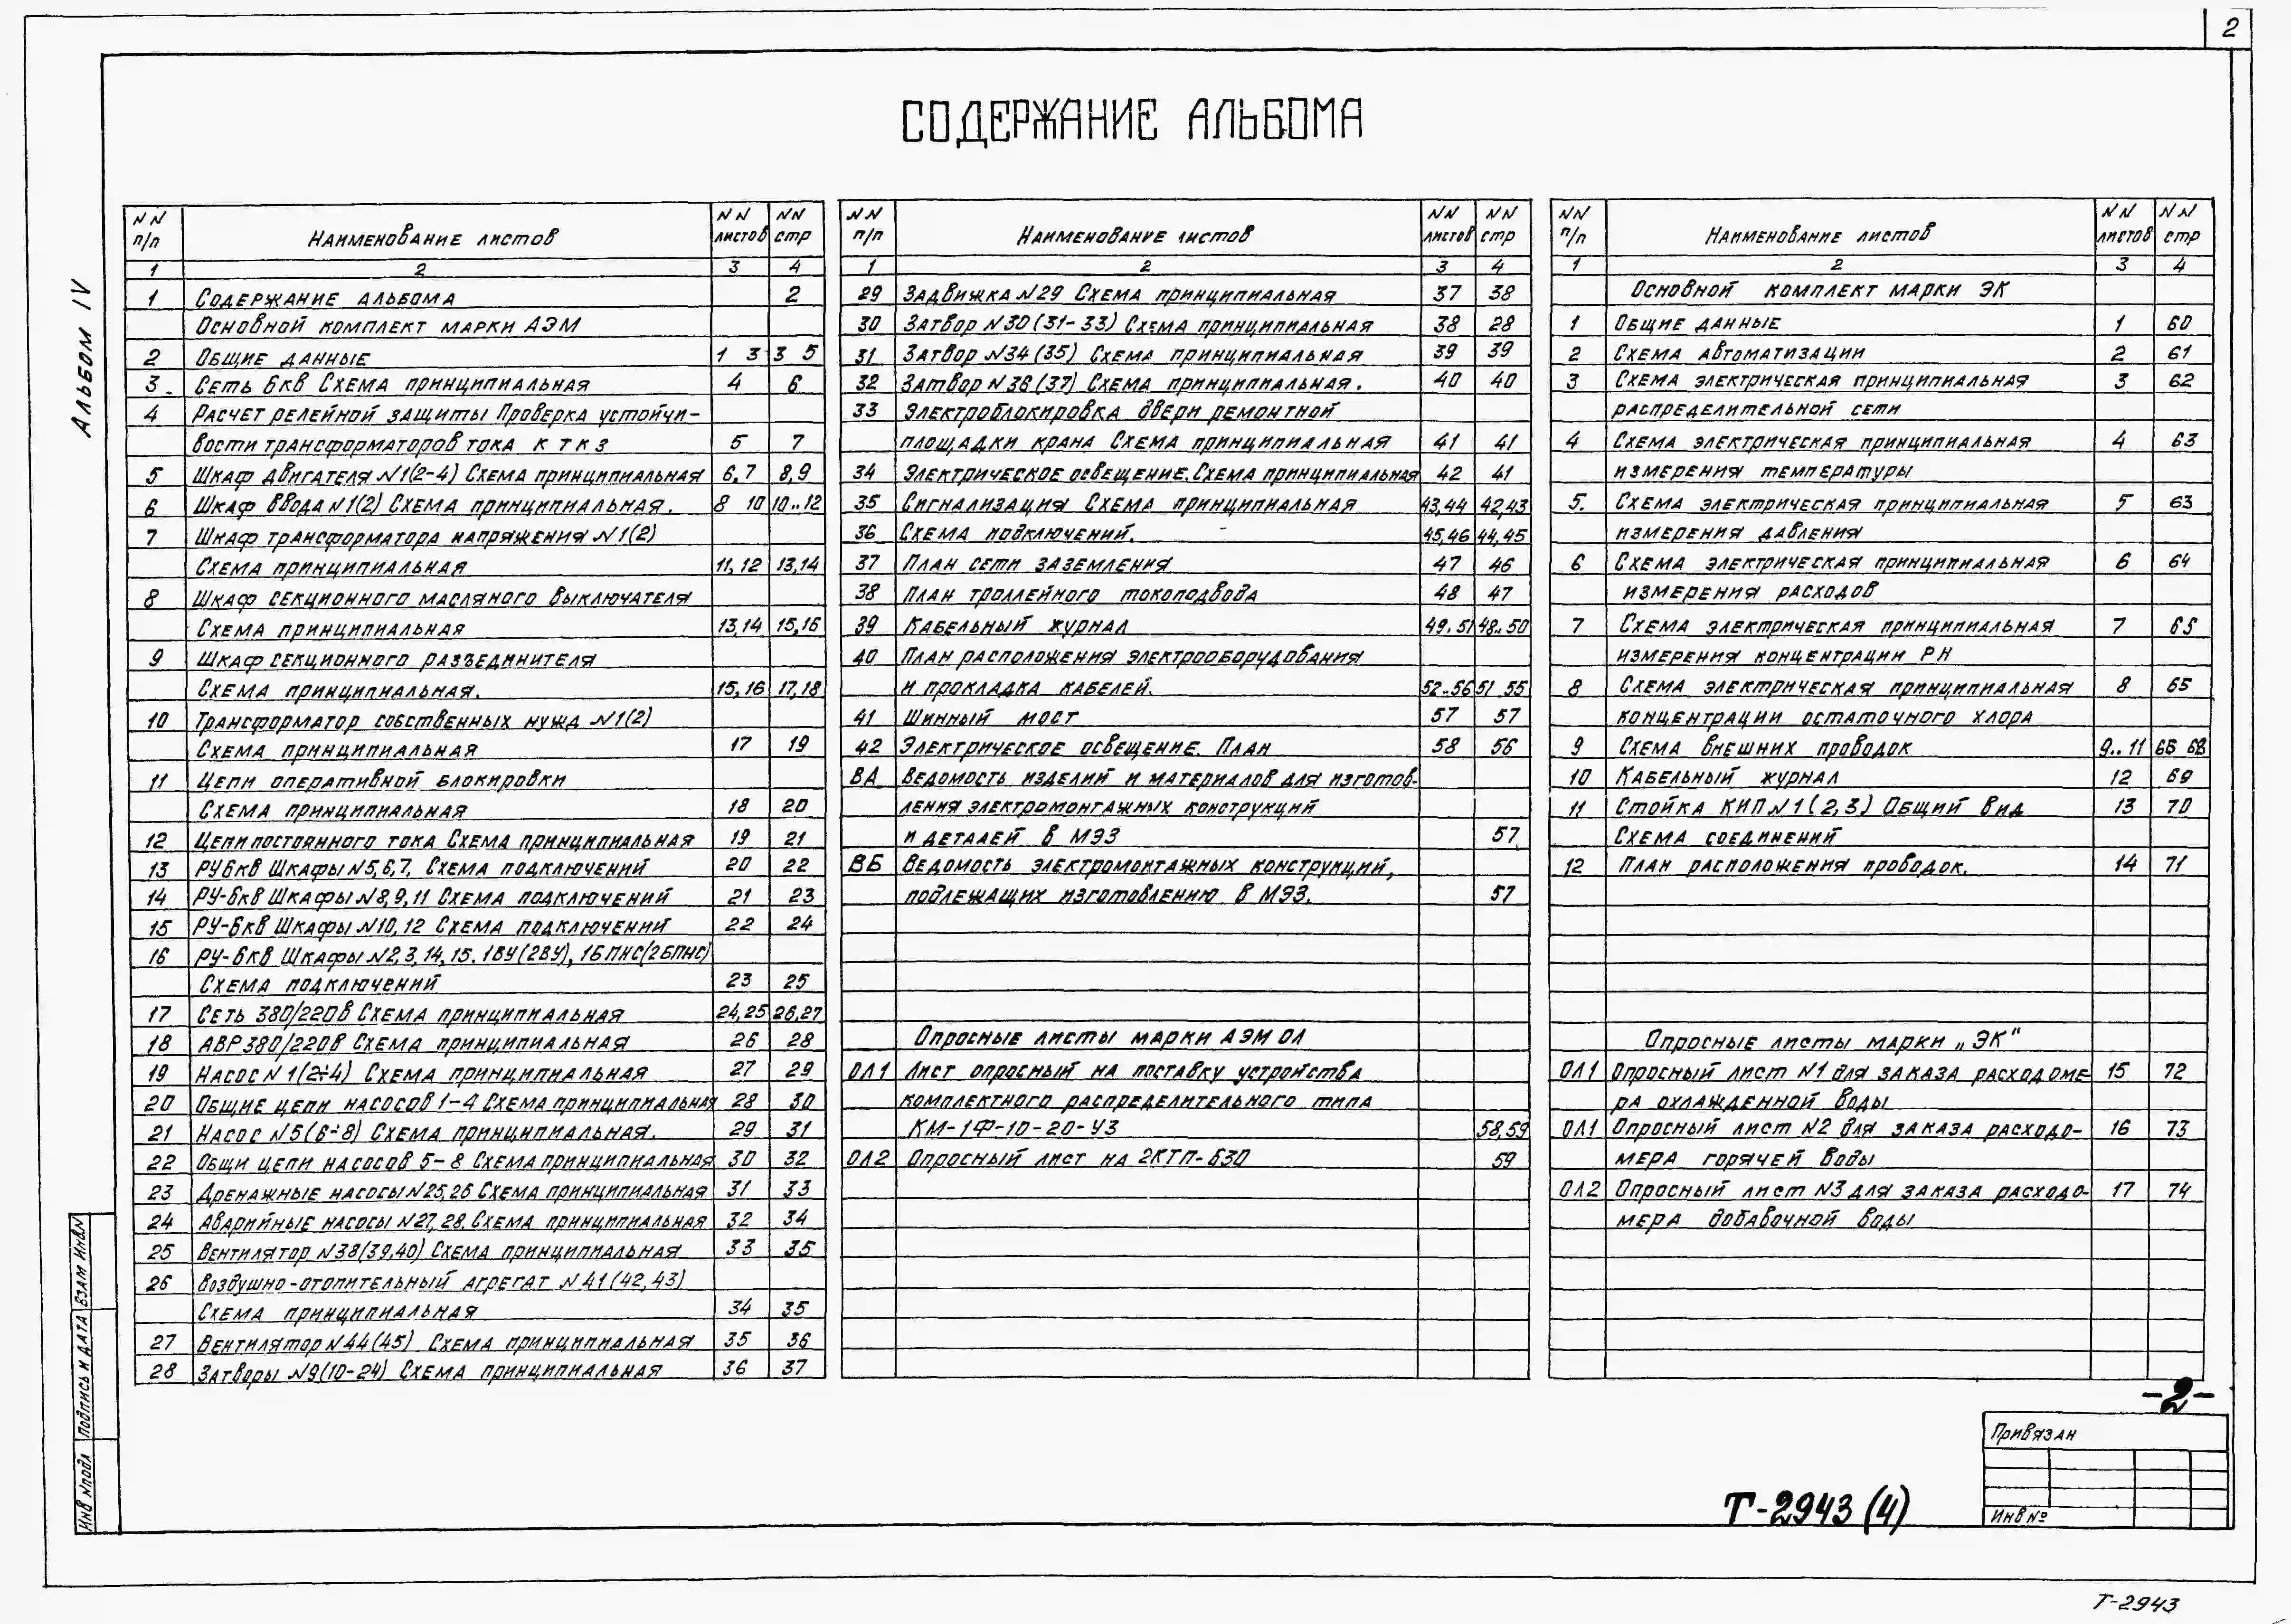 2
СОДЕРЖАНИЕ АЛЬБОМА
Альбом IV
NN п/п Наименование листов NN листов NN стр
1 2 3 4
1 Содержание альбома 2
Основной комплект марки АЭМ
2 Общие данные 1 3 3 5
3 Сеть 6кв Схема принципиальная 4 6
4 Расчет релейной защиты Проверка устойчи-
вости трансформаторов тока к т к з 5 7
5 Шкаф двигателя N1(2-4) Схема принципиальная 6,7 8,9
6 Шкаф ввода N1(2) Схема принципиальная. 8 10 10..12
7 Шкаф трансформатора напряжения N1(2)
Схема принципиальная 11,12 13,14
8 Шкаф секционного масляного выключателя
Схема принципиальная 13,14 15,16
9 Шкаф секционного разъединителя
Схема принципиальная. 15,16 17,18
10 Трансформатор собственных нужд N1(2)
Схема принципиальная 17 19
11 Цепи оперативной блокировки
Схема принципиальная 18 20
12 Цепи постоянного тока Схема принципиальная 19 21
13 РУ6кв Шкафы N5,6,7. Схема подключений 20 22
14 РУ-6кв Шкафы N8,9,11 Схема подключений 21 23
15 РУ-6кв Шкафы N10,12 Схема подключений 22 24
16 РУ-6кв Шкафы N2,3,14,15. 1ВУ(2ВУ), 1БПНС(2БПНС)
Схема подключений 23 25
17 Сеть 380/220в Схема принципиальная 24,25 26,27
18 АВР 380/220в Схема принципиальная 26 28
19 Насос N1(2÷4) Схема принципиальная 27 29
20 Общие цепи насосов 1-4 Схема принципиальная 28 30
21 Насос N5(6÷8) Схема принципиальная. 29 31
22 Общи цепи насосов 5-8 Схема принципиальная 30 32
23 Дренажные насосы N25,26 Схема принципиальная 31 33
24 Аварийные насосы N27,28. Схема принципиальная 32 34
25 Вентилятор N38(39,40) Схема принципиальная 33 35
26 Воздушно-отопительный агрегат N41(42,43)
Схема принципиальная 34 35
27 Вентилятор N44(45) Схема принципиальная 35 36
28 Затворы N9(10-24) Схема принципиальная 36 37
NN п/п Наименование листов NN листов NN стр
1 2 3 4
29 Задвижка N29 Схема принципиальная 37 38
30 Затвор N30(31-33) Схема принципиальная 38 28
31 Затвор N34(35) Схема принципиальная 39 39
32 Затвор N36(37) Схема принципиальная. 40 40
33 Электроблокировка двери ремонтной
площадки крана Схема принципиальная 41 41
34 Электрическое освещение. Схема принципиальная 42 41
35 Сигнализация Схема принципиальная 43,44 42,43
36 Схема подключений. 45,46 44,45
37 План сети заземления 47 46
38 План троллейного токоподвода 48 47
39 Кабельный журнал 49.51 48..50
40 План расположения электрооборудования
и прокладка кабелей. 52..56 51 55
41 Шинный мост 57 57
42 Электрическое освещение. План 58 56
ВА Ведомость изделий и материалов для изготов-
ления электромонтажных конструкций
и деталей в МЭЗ 57
ВБ Ведомость электромонтажных конструкций,
подлежащих изготовлению в МЭЗ. 57
Опросные листы марки АЭМ ОЛ
ОЛ1 Лист опросный на поставку устройства
комплектного распределительного типа
КМ-1Ф-10-20-У3 58,59
ОЛ2 Опросный лист на 2КТП-630 59
NN п/п Наименование листов NN листов NN стр
1 2 3 4
Основной комплект марки ЭК
1 Общие данные 1 60
2 Схема автоматизации 2 61
3 Схема электрическая принципиальная 3 62
распределительной сети
4 Схема электрическая принципиальная 4 63
измерения температуры
5. Схема электрическая принципиальная 5 63
измерения давления
6 Схема электрическая принципиальная 6 64
измерения расходов
7 Схема электрическая принципиальная 7 65
измерения концентрации РН
8 Схема электрическая принципиальная 8 65
концентрации остаточного хлора
9 Схема внешних проводок 9..11 66 68
10 Кабельный журнал 12 69
11 Стойка КИП N1(2,3) Общий вид 13 70
Схема соединений
12 План расположения проводок. 14 71
Опросные листы марки „ЭК"
ОЛ1 Опросный лист N1 для заказа расходоме- 15 72
ра охлажденной воды
ОЛ1 Опросный лист N2 для заказа расходо- 16 73
мера горячей воды
ОЛ2 Опросный лист N3 для заказа расходо- 17 74
мера добавочной воды
-2-
Привязан
Инв №
Т-2943 (4)
Инв Nподл Подпись и дата Взам инвN
Т-2943